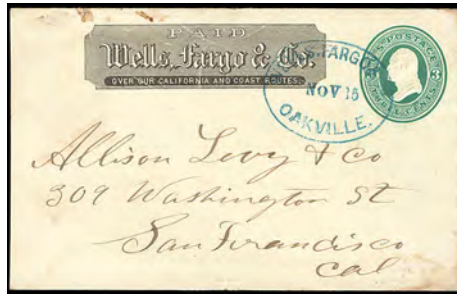 PAID
Wells, Fargo & Co.
OVER OUR CALIFORNIA AND COAST ROUTES.
FARGO
NOV 15
OAKVILLE.
U.S. POSTAGE
3
CENTS
Allison Levy & Co
309 Washington St
San Francisco
Cal